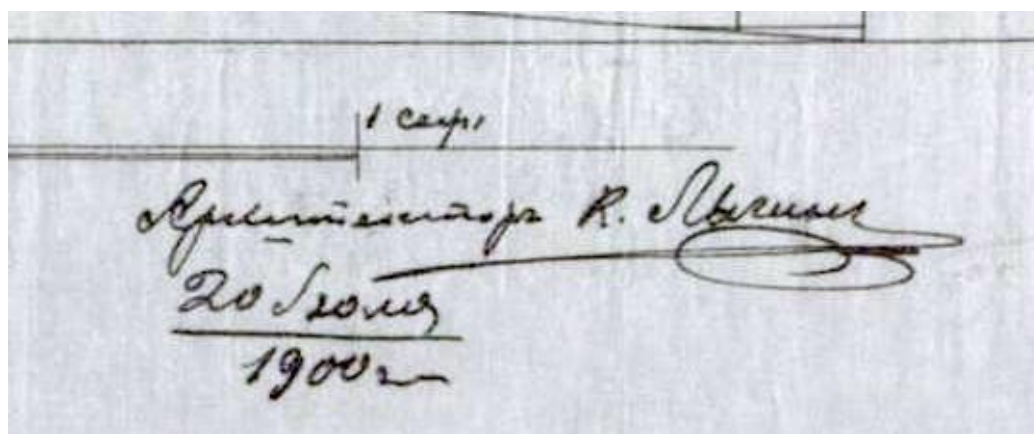 Архитекторъ К. Лыгинъ
20 Iюля
1900 г.